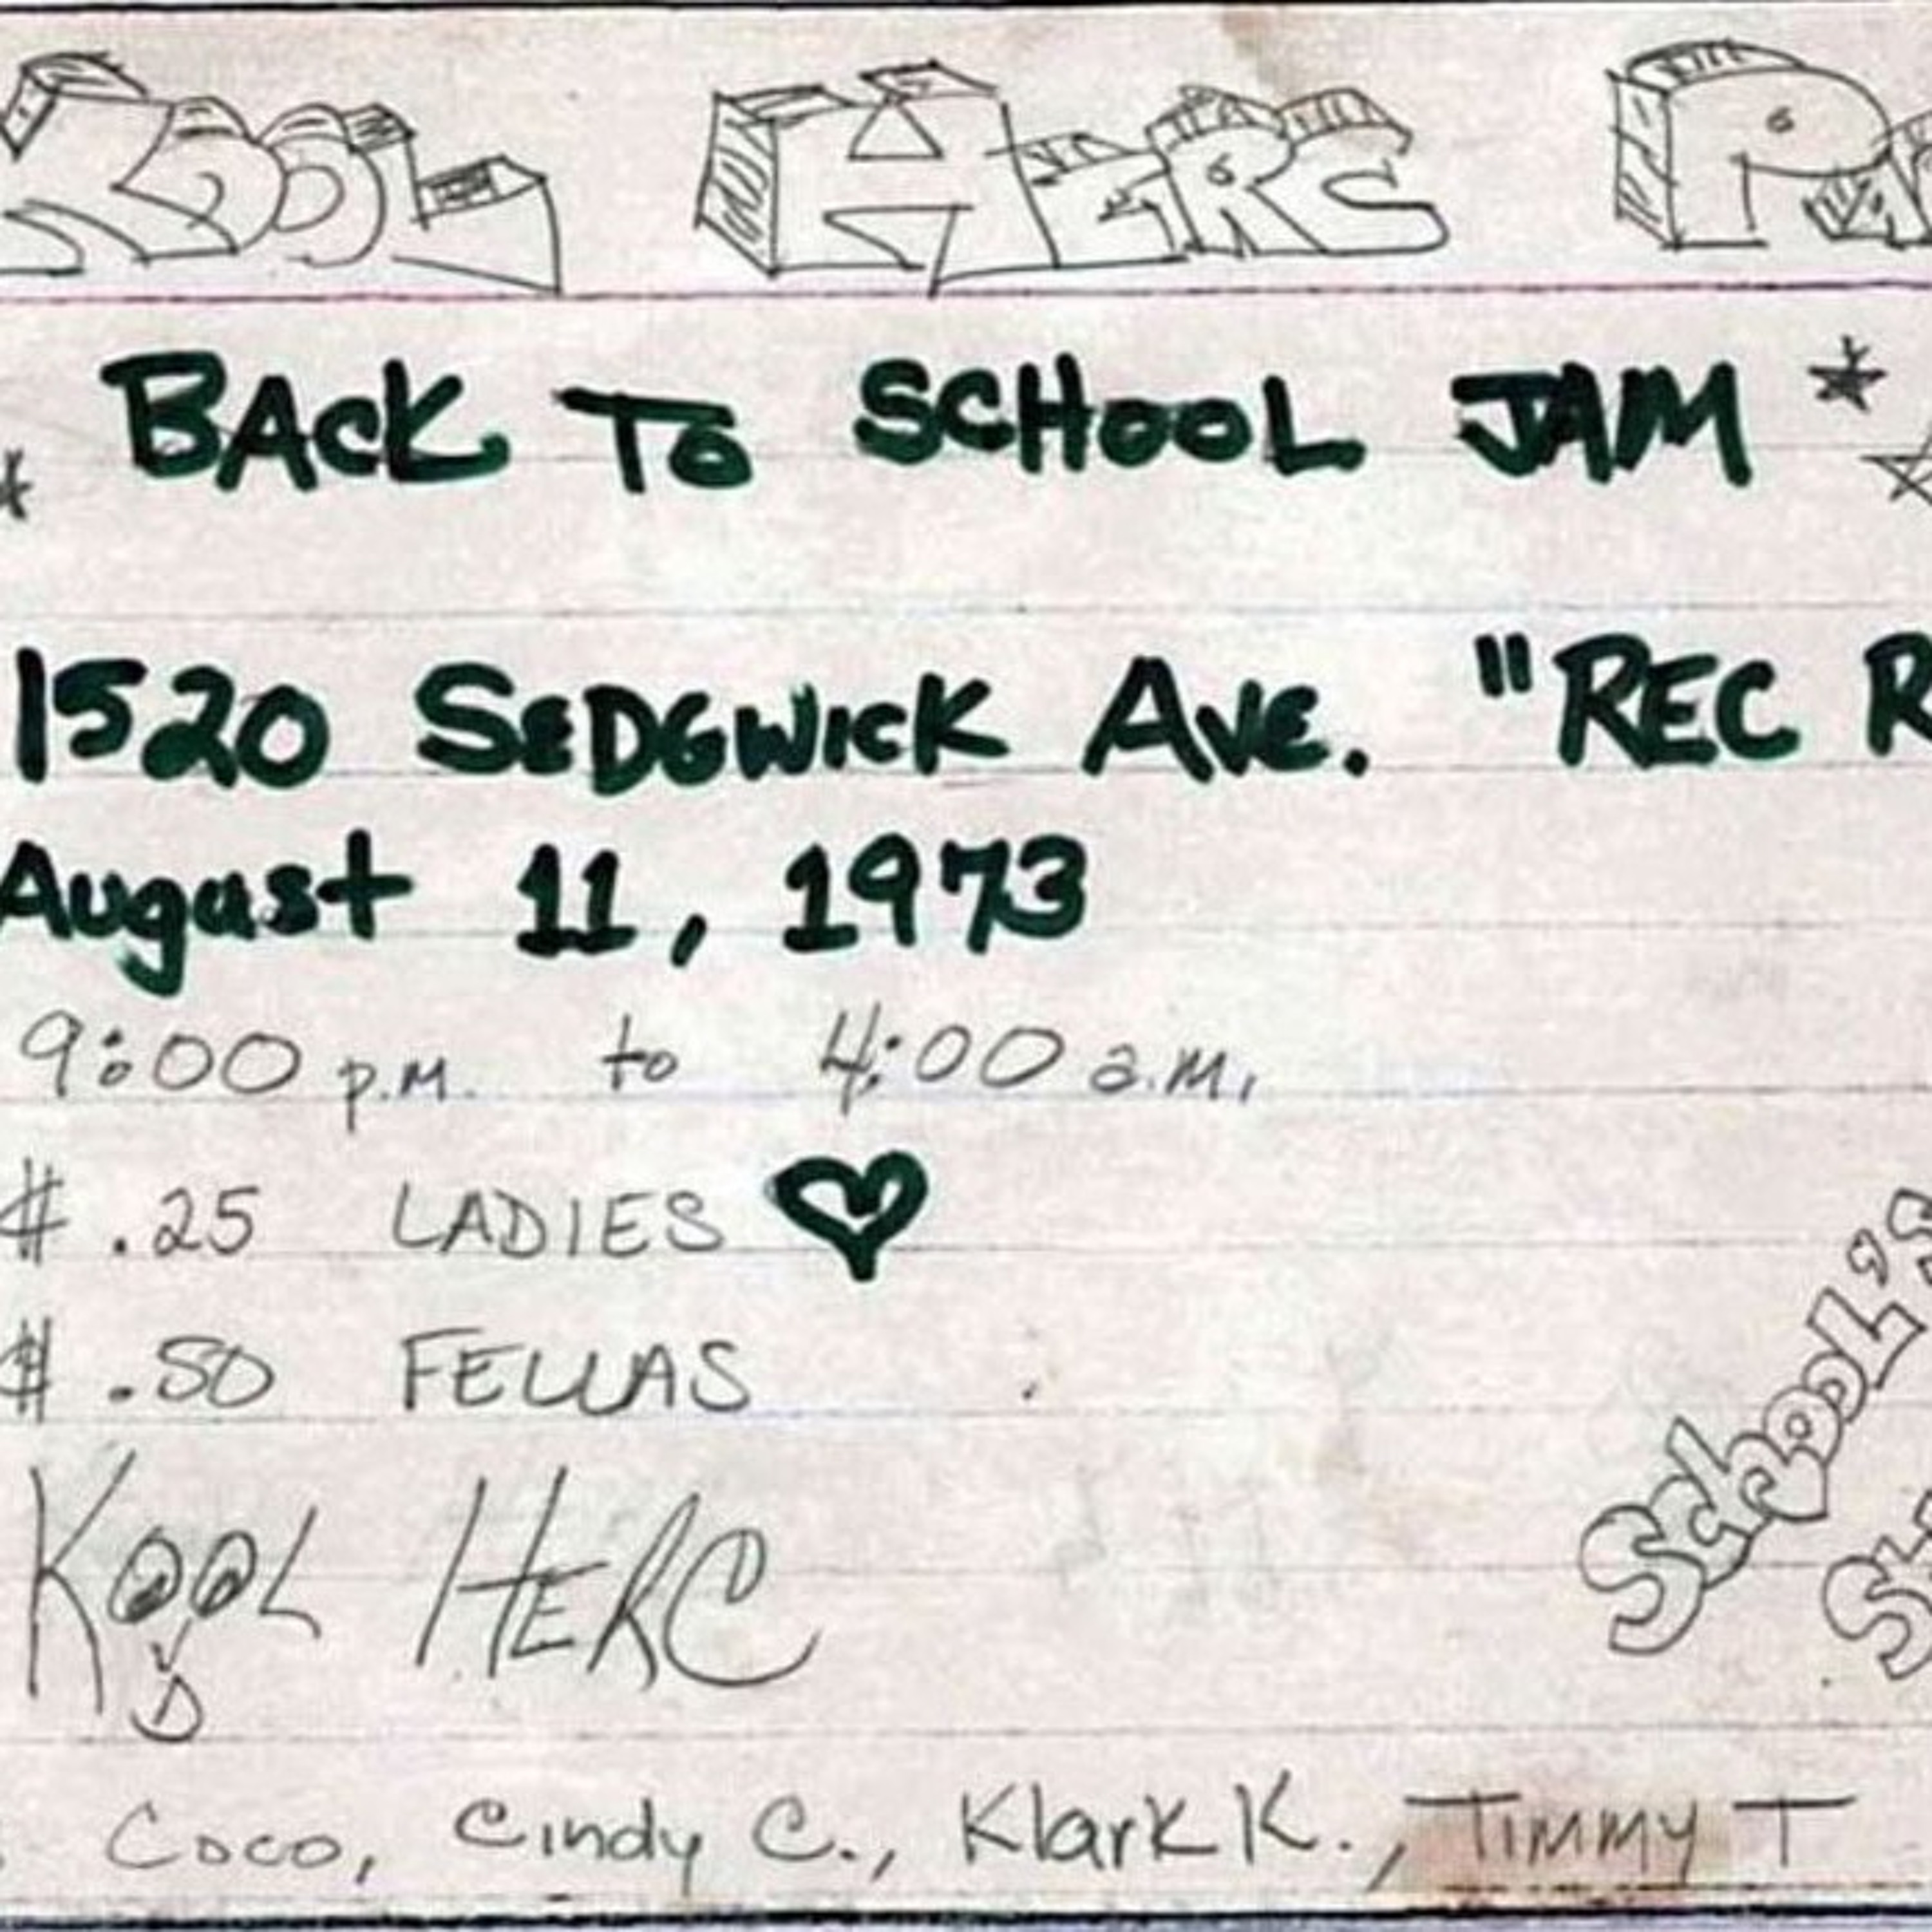 KOOL HERC
BACK TO SCHOOL JAM
1520 SEDGWICK AVE. "REC R
August 11, 1973
9:00 p.m. to 4:00 a.m.
$ .25 LADIES
$ .50 FELLAS
School's
KOOL HERC
D
Coco, Cindy C., Klark K., Timmy T